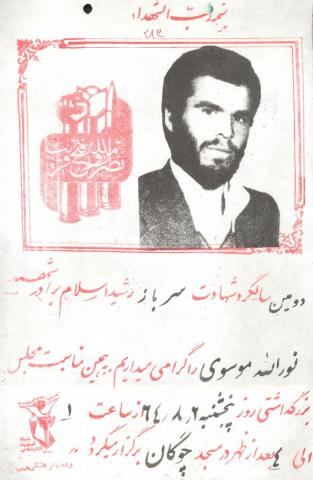 بسمه رب الشهداء
نصر من الله و فتح قریب
دومین سالگرد شهادت سرباز رشید اسلام برادر
نورالله موسوی را گرامی میداریم بهمین مناسبت مجلس
بزرگداشتی روز پنجشنبه ۶۴٫۸٫۶ از ساعت ۱
الی ۴ بعد از ظهر در مسجد چوگان برگزار میگردد